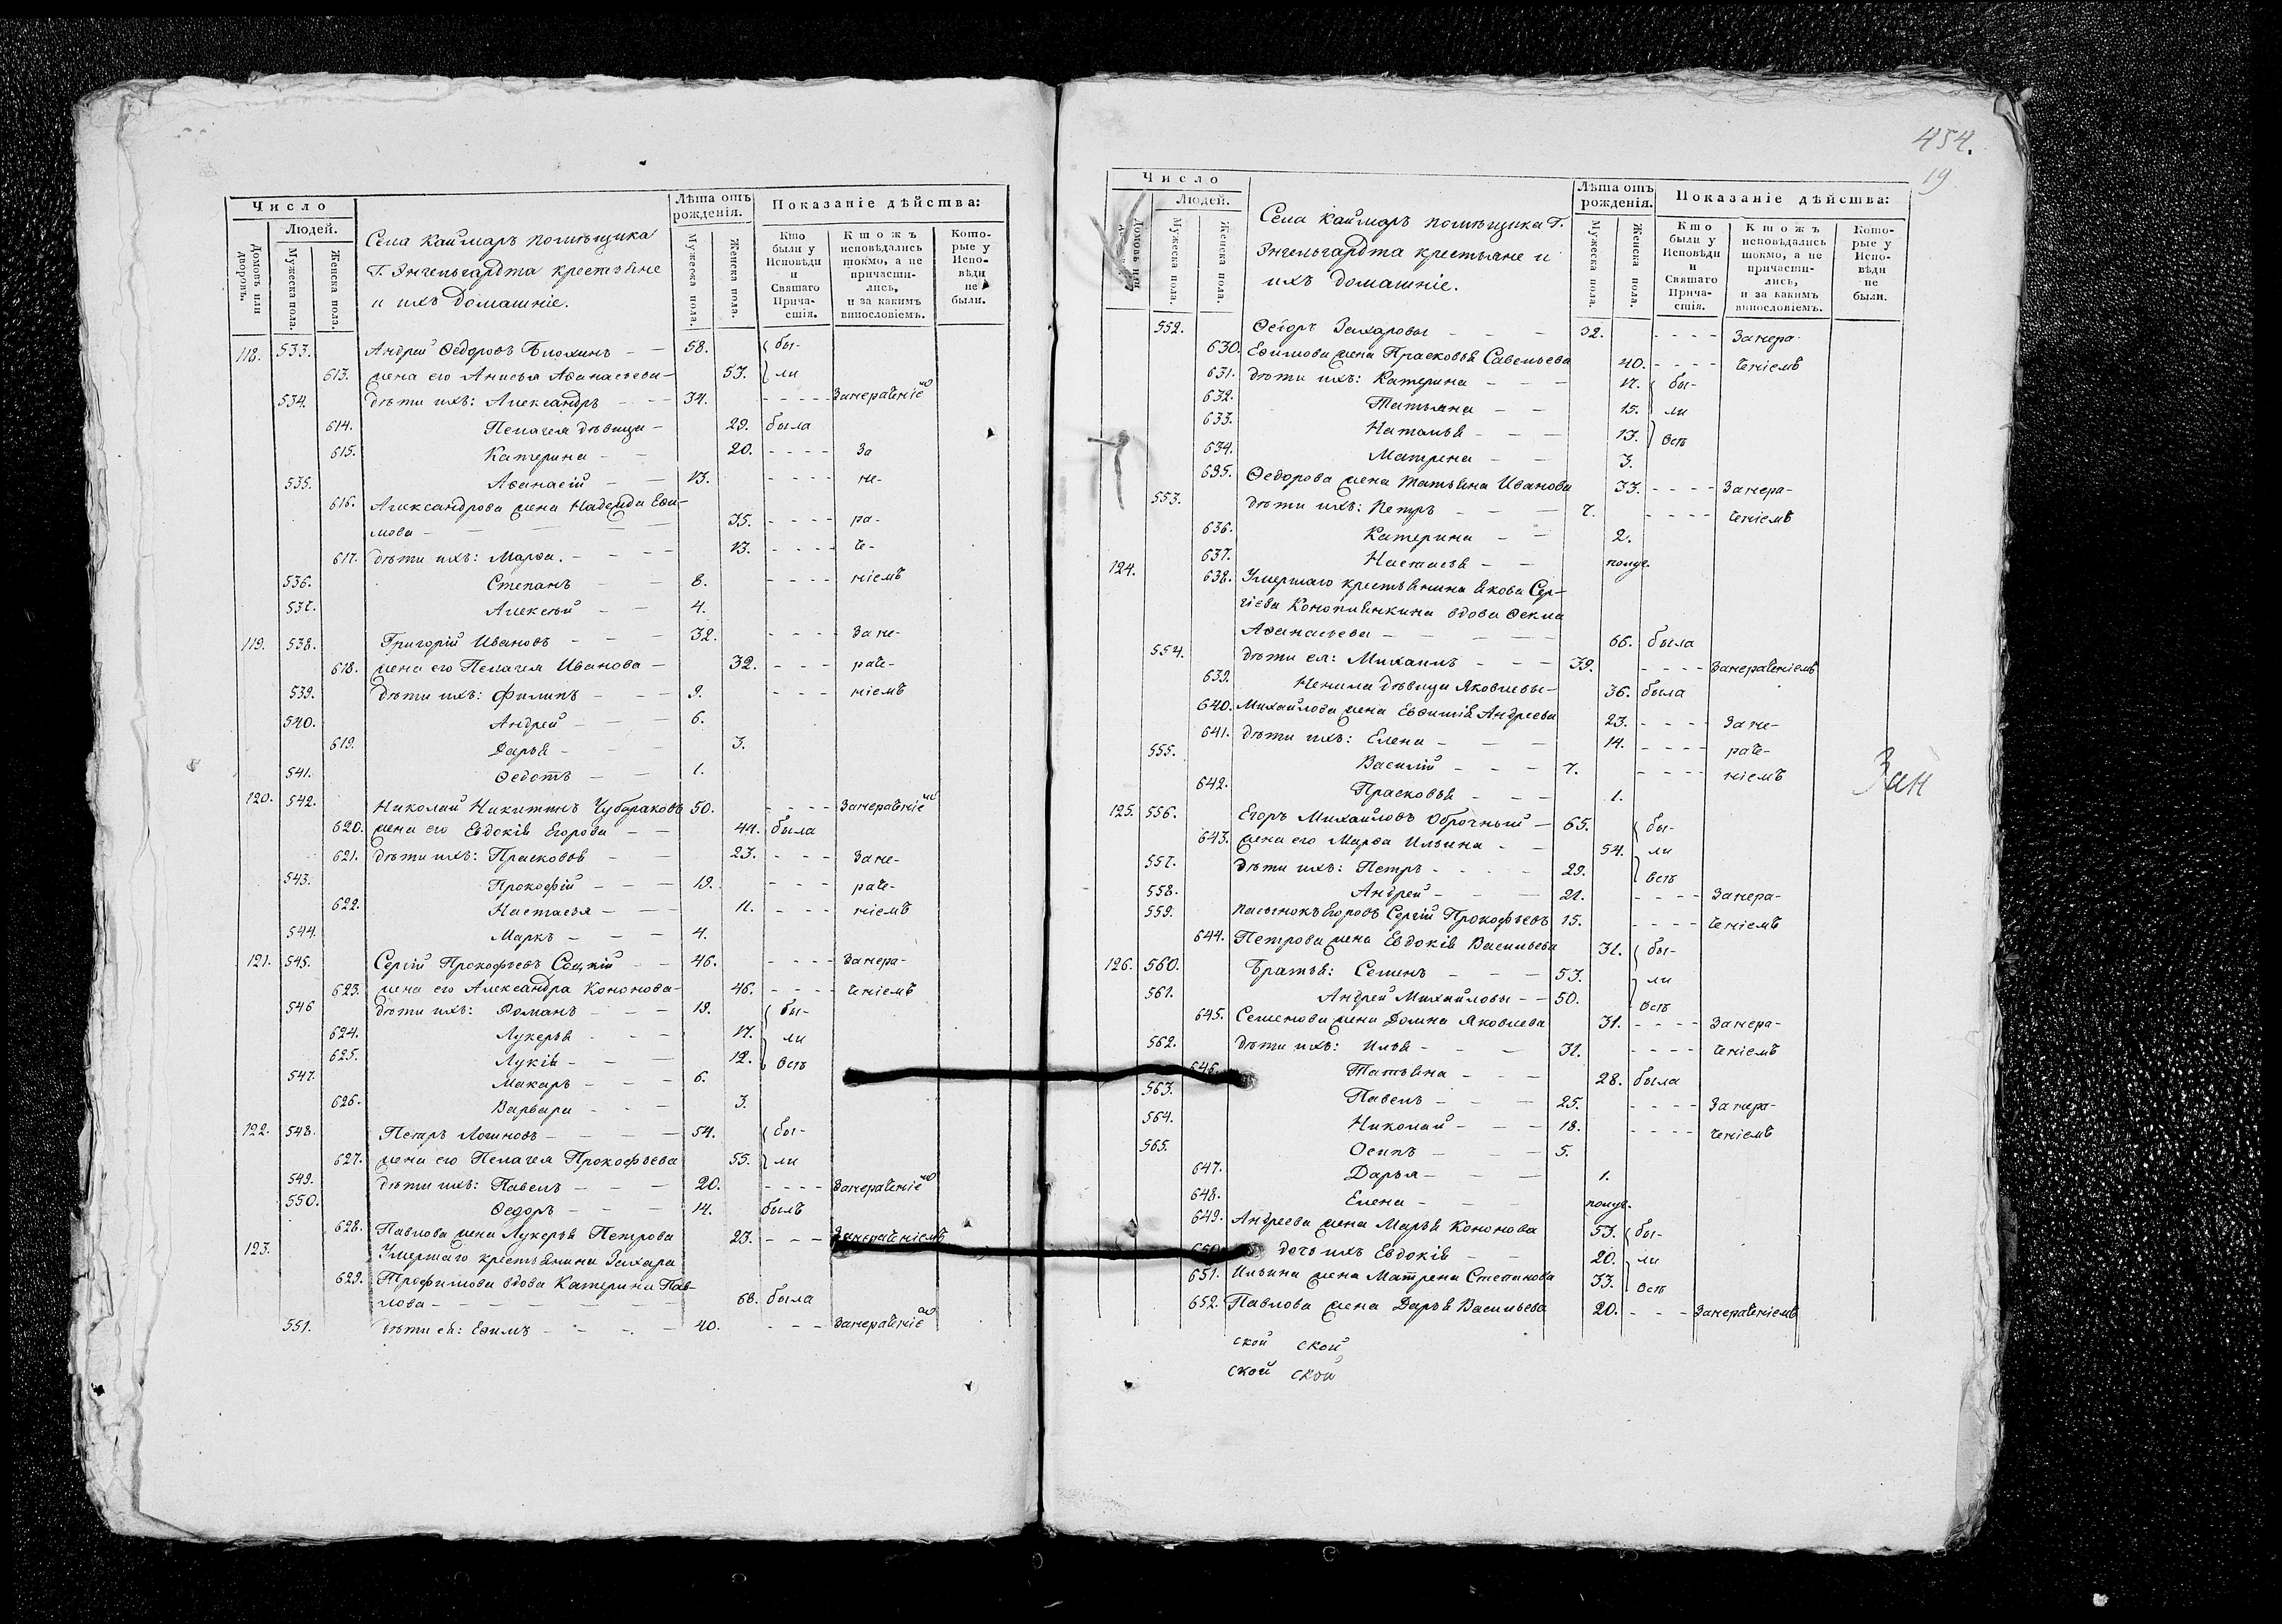 Число
Людей.
Домовъ или дворовъ.
Мужеска пола.
Женска пола.
Села Каймаръ помѣщика
Г. Энгельгардта крестьяне
и ихъ домашніе.
Лѣта отъ рожденія.
Мужеска пола.
Женска пола.
Показаніе дѣйства:
Кто были у Исповѣди и Святаго Прича-стія.
Ктожъ исповѣдались токмо, а не причасти-лись, и за какимъ винословіемъ.
Кото-рые у Испо-вѣди не были.
118. 533. Андрей Ѳедоровъ Блохинъ — 58. бы-
613. жена его Анисья Аѳанасьева — 53. ли
534. дѣти ихъ: Александръ — 34. - - - - занераченіемъ
614. Пелагея дѣвица — 29. была
615. Катерина — 20. - - - - за
535. Аѳанасій — 13. - - - - не-
616. Александрова жена Надежда Еѳи-
мова — 35. - - - - ра-
617. дѣти ихъ: Марѳа. — 13. - - - - че-
536. Степанъ — 8. - - - - ніемъ
537. Алексѣй — 4.
119. 538. Григорій Ивановъ — 32. - - - - зане-
618. жена его Пелагея Иванова — 32. - - - раче-
539. дѣти ихъ: Филипъ — 9. - - - ніемъ
540. Андрей — 6.
619. Дарья — 3.
541. Ѳедотъ — 1.
120. 542. Николай Никитинъ Чубараковъ 50. - - - - занераченіемъ
620. жена его Евдокія Егорова — 44. была
621. дѣти ихъ: Прасковья — 23. - - - зане-
543. Прокофій — 19. - - - раче-
622. Настасья — 11. - - - ніемъ
544. Маркъ — 4.
121. 545. Сергій Прокофьевъ Соцкій — 46. - - - - занера-
623. жена его Александра Кононова — 46. - - - - ченіемъ
546 дѣти ихъ: Романъ — 19. бы-
624. Лукерья — 17. ли
625. Лукія — 12. всѣ
547. Макаръ — 6.
626. Варвара — 3.
122. 548. Петръ Логиновъ — 54. бы-
627. жена его Пелагея Прокофьева 55. ли
549. дѣти ихъ: Павелъ — 20. - - - - занераченіемъ
550. Ѳедоръ — 14. былъ
628. Павлова жена Лукерья Петрова 23. - - - занераченіемъ
123. Умершаго крестьянина Захара
629. Трофимова вдова Катерина Пав-
лова — 68. была
551. дѣти ея: Еѳимъ — 40. - - - занераченіемъ
454.
19
Число
Людей.
Домовъ или
Мужеска пола.
Женска пола.
Села Каймаръ помѣщика Г.
Энгельгардта крестьяне и
ихъ домашніе.
Лѣта отъ рожденія.
Мужеска пола.
Женска пола.
Показаніе дѣйства:
Кто были у Исповѣди и Святаго Прича-стія.
Ктожъ исповѣдались токмо, а не причасти-лись, и за какимъ винословіемъ.
Кото-рые у Испо-вѣди не были.
552. Ѳедоръ Захаровы — 32. - - - - занера-
630. Еѳимова жена Прасковья Савельева 40. - - - - ченіемъ
631. дѣти ихъ: Катерина — 17. бы-
632. Татьяна — 15. ли
633. Наталья — 13. всѣ
634. Матрена — 3.
635. Ѳедорова жена Татьяна Иванова 33. - - - - занера-
553. дѣти ихъ: Петръ — 7. - - - - ченіемъ
636. Катерина — 2.
637. Настасья — полуг.
124. 638. Умершаго крестьянина Якова Сер-
гіева Коноплянкина вдова Ѳекла
Аѳанасьева — 66. была
554. дѣти ея: Михаилъ — 39. - - - - занераченіемъ
639. Ненила дѣвица Яковлевы — 36. была
640. Михайлова жена Евѳимія Андреева 23. - - - - зане-
641. дѣти ихъ: Елена — 14. - - - - раче-
555. Василій — 7. - - - - ніемъ
642. Прасковья — 1.
Зан
125. 556. Егоръ Михайловъ Оброчный — 65. бы-
643. жена его Марѳа Ильина — 54. ли
557. дѣти ихъ: Петръ — 29. всѣ
558. Андрей — 21. - - - - занера-
559. Пасынокъ Егоровъ Сергій Прокофьевъ 15. - - - - ченіемъ
644. Петрова жена Евдокія Васильева 31. бы-
126. 560. Братья: Семенъ — 53. ли
561. Андрей Михайловы — 50. всѣ
645. Семенова жена Домна Яковлева 31. - - - - занера-
562. дѣти ихъ: Илья — 31. - - - - ченіемъ
646. Татьяна — 28. была
563. Павелъ — 25. - - - - занера-
564. Николай — 18. - - - - ченіемъ
565. Осипъ — 5.
647. Дарья — 1.
648. Елена — полуг.
649. Андреева жена Марья Кононова 53. бы-
650. дочь ихъ Евдокія — 20. ли
651. Ильина жена Матрена Степанова 33. всѣ
652. Павлова жена Дарья Васильева 20. - - - занераченіемъ
ской ской
ской ской